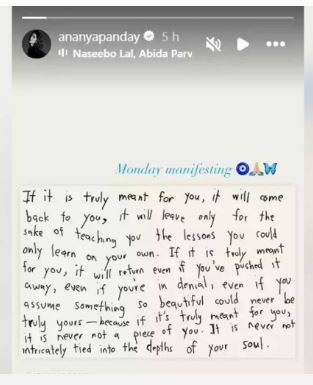 ananyapanday 5 h
Naseebo Lal, Abida Parv
Monday manifesting
If it is truly meant for you, it will come
back to you, it will leave only for the
sake of teaching you the lessons you could
only learn on your own. If it is truly meant
for you, it will return even if you've pushed it
away, even if you're in denial, even if you
assume something so beautiful could never be
truly yours — because if it's truly meant for you,
it is never not a piece of you. It is never not
intricately tied into the depths of your soul.